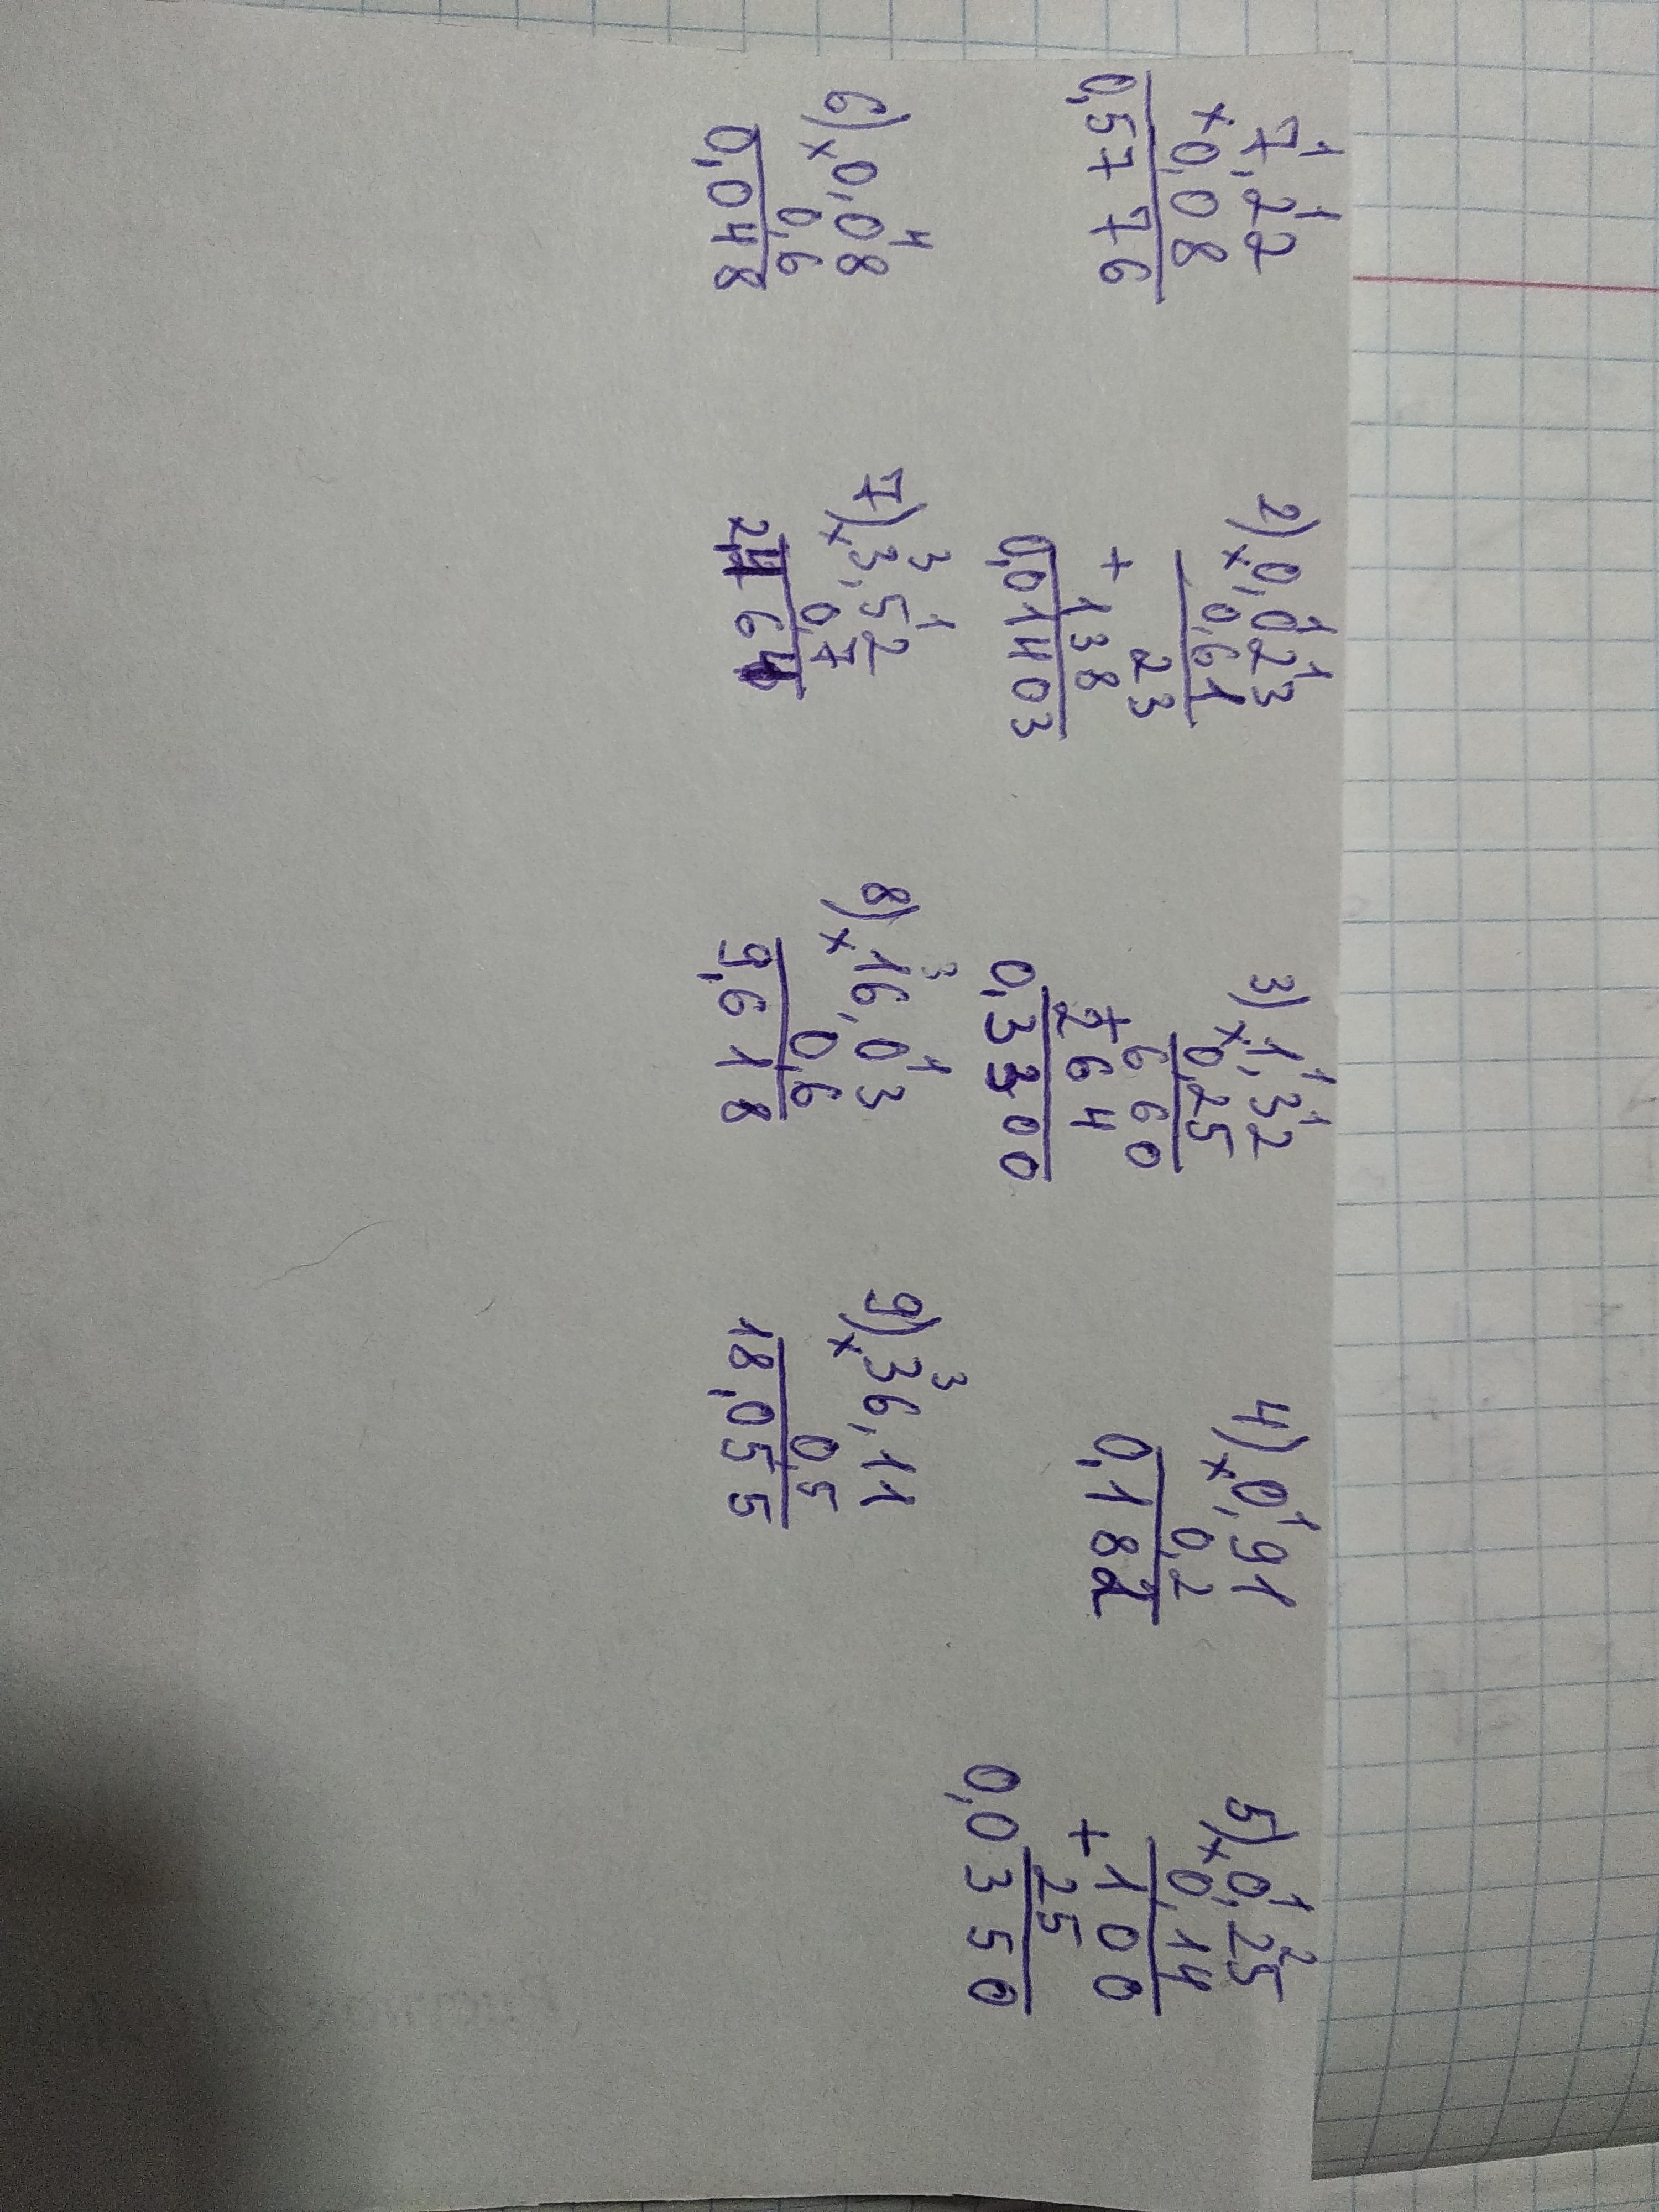 7,22
×0,08
0,5776
2) ×0,023
0,61
23
+138
0,01403
3) ×1,32
0,25
660
+264
0,3300
4) ×0,91
0,2
0,182
5) ×0,25
0,14
100
+25
0,0350
6) ×0,08
0,6
0,048
7) ×3,52
0,7
2,464
8) ×16,03
0,6
9,618
9) ×36,11
0,5
18,055